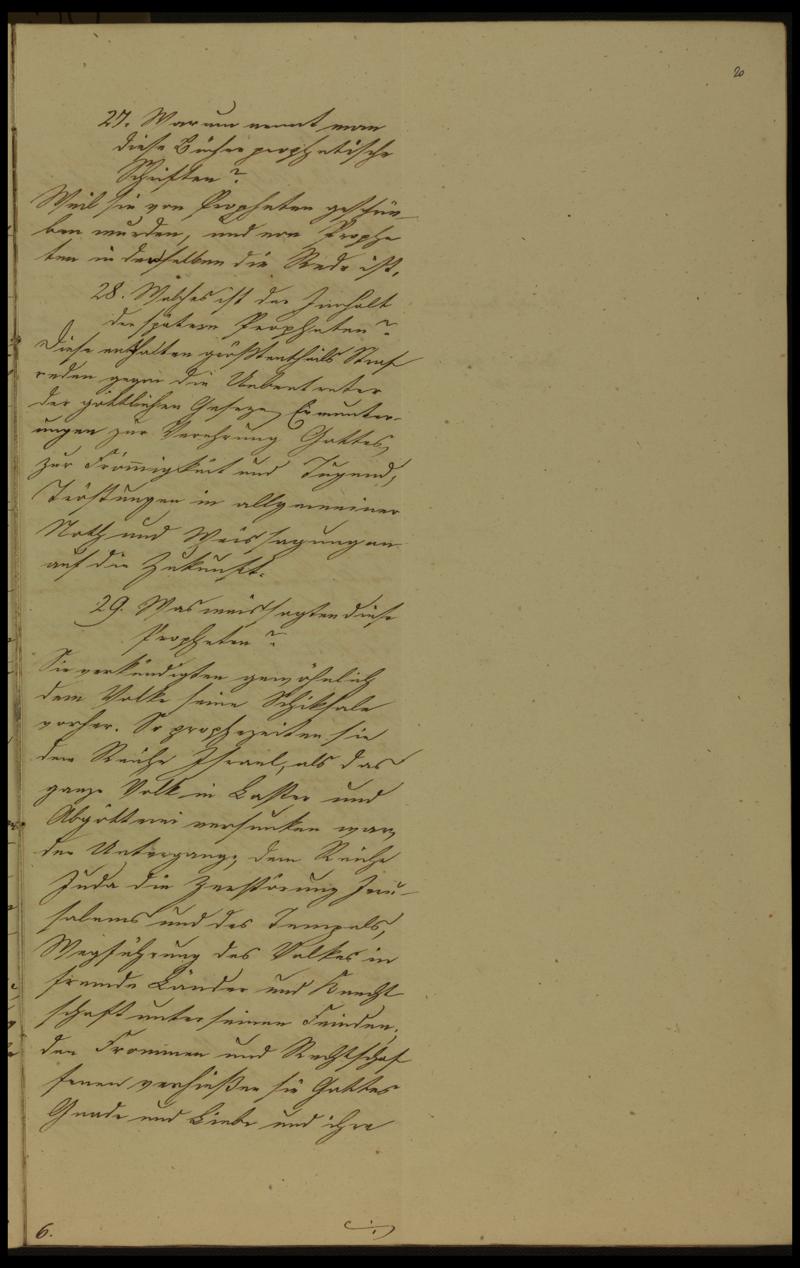 20
27. Warum nennt man
diese Bücher prophetische
Schriften?
Weil sie von Propheten geschrie
ben wurden, und von Prophe
ten in denselben die Rede ist.
28. Welches ist der Innhalt
der spätern Propheten?
Diese enthalten größtentheils Straf
reden gegen die Uebertreter
der göttlichen Geseze, Ermunter-
ungen zur Verehrung Gottes,
zur Frömigkeit und Tugend,
Tröstungen in allgemeiner
Noth und Weissagungen
auf die Zukunft.
29. Was weissagten diese
Propheten?
Sie verkündigten gewöhnlich
dem Volke seine Schiksale
vorher. So prophezeiten sie
dem Reiche Israel, als das
ganze Volk in Laster und
Abgötterei versunken war,
den Untergang; dem Reiche
Juda die Zerstörung Jeru-
salems und des Tempels,
Wegführung des Volkes in
fremde Länder und Knecht
schaft unter seinen Feinden;
den Frommen und Rechtschaf
fenen verhießen sie Gottes
Gnade und Liebe und ihre
6.